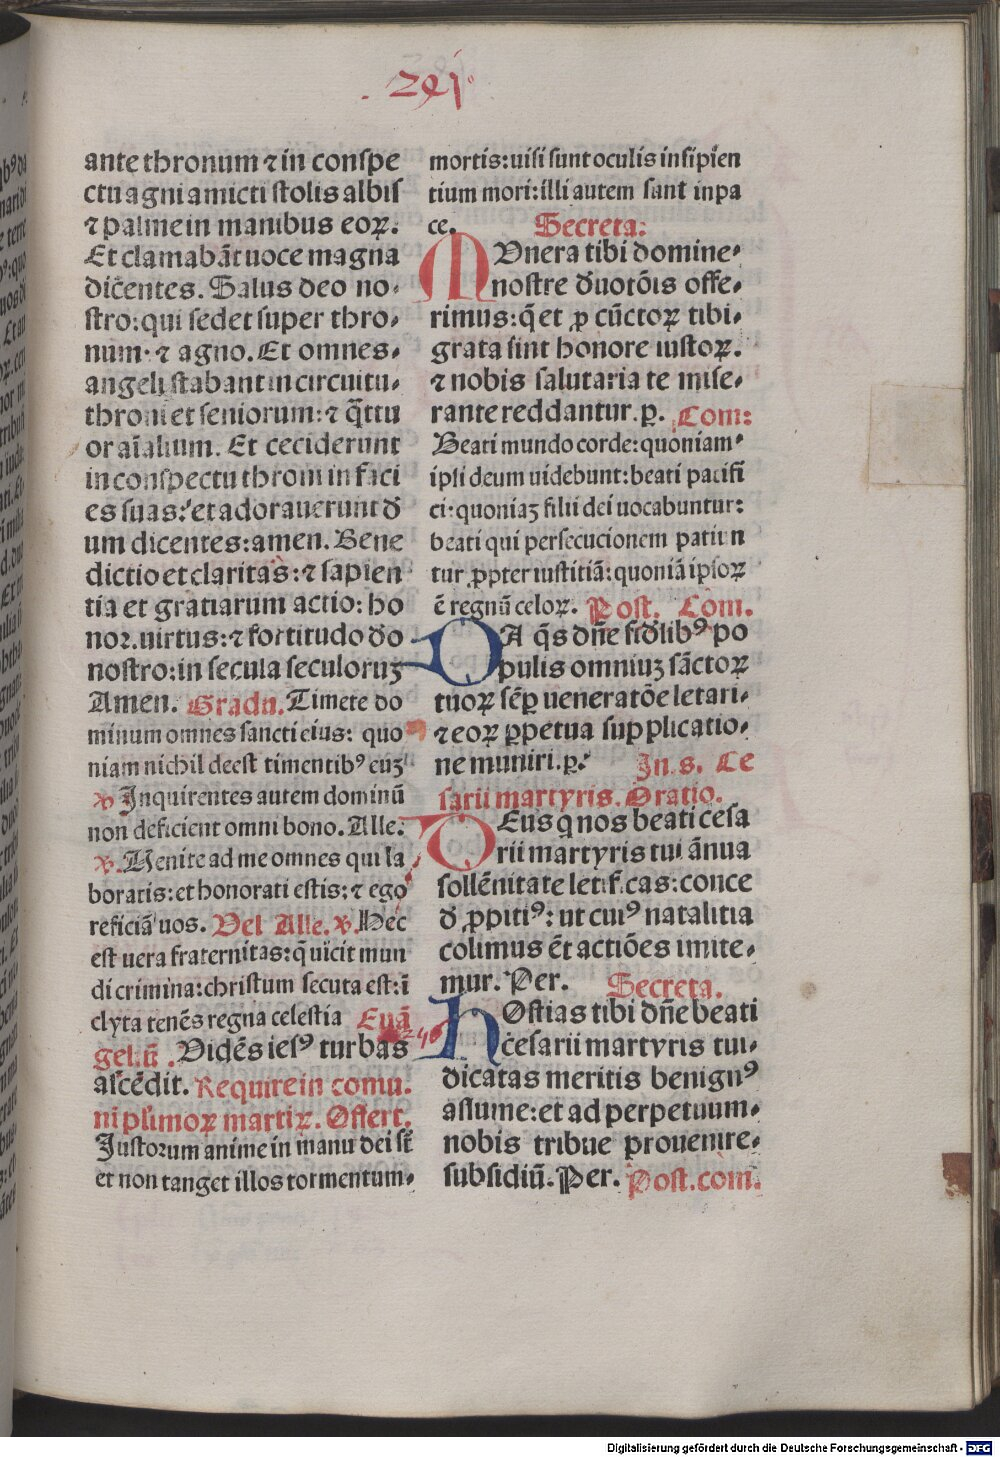 . 291.
ante thronum ⁊ in conspe
ctu agni amicti stolis albis
⁊ palme in manibus eoꝝ.
Et clamabāt uoce magna
dicentes. Salus deo no-
stro: qui sedet super thro,
num· ⁊ agno. Et omnes,
angeli stabant in circuitu,
throni et seniorum: ⁊ q̄ttu
or aīalium. Et ceciderunt
in conspectu throni in faci
es suas: et adorauerunt d̄
um dicentes: amen. Bene
dictio et claritas: ⁊ sapien
tia et gratiarum actio: ho
nor. uirtus: ⁊ fortitudo d̄o
nostro: in secula seculoruꝫ
Amen. Gradu. Timete do
minum omnes sancti eius: quo
niam nichil deest timentibꝰ euꝫ
℣ Inquirentes autem dominū
non deficient omni bono. Alle.
℣. Uenite ad me omnes qui la
boratis: et honorati estis: ⁊ ego
reficiā uos. Uel Alle. ℣. Hec
est uera fraternitas: q̄ uicit mun
di crimina: christum secuta est: ī
clyta tenēs regna celestia Euā
geliū. Uidēs iesꝰ turbas 246
ascēdit. Require in comu.
ni plimoꝝ martiꝝ. Offert.
Justorum anime in manu dei st̄
et non tanget illos tormentum,
mortis: uisi sunt oculis insipien
tium mori: illi autem sunt in pa
ce. Secreta:
MUnera tibi domine,
nostre d̄uotōis offe,
rimus: q̄ et ꝓ cūctoꝝ tibi,
grata sint honore iustoꝝ.
⁊ nobis salutaria te mise,
rante reddantur. p̲. Com:
Beati mundo corde: quoniam,
ipsi deum uidebunt: beati pacifi
ci: quoniaꝫ filii dei uocabuntur:
beati qui persecucionem patiun
tur ꝓpter iustitiā: quoniā ipsoꝝ
ē regnū celoꝝ. Post. Com.
DA q̄s dn̄e fid̄libꝰ po
pulis omniuꝫ sāctoꝝ
tuoꝝ sēꝑ ueneratōe letari,
⁊ eoꝝ ꝑpetua supplicatio,
ne muniri. p̲. In. s. Ce
sarii martyris. Oratio.
DEus q nos beati cesa
rii martyris tui ānua
sollēnitate letificas: conce
d̄ ꝓpitiꝰ: ut cuiꝰ natalitia
colimus ēt actiōes imite,
mur. Per. Secreta.
HOstias tibi dn̄e beati
cesarii martyris tui,
dicatas meritis benignꝰ
assume: et ad perpetuum,
nobis tribue prouenire,
subsidiū. Per. Post. com.
Digitalisierung gefördert durch die Deutsche Forschungsgemeinschaft - DFG